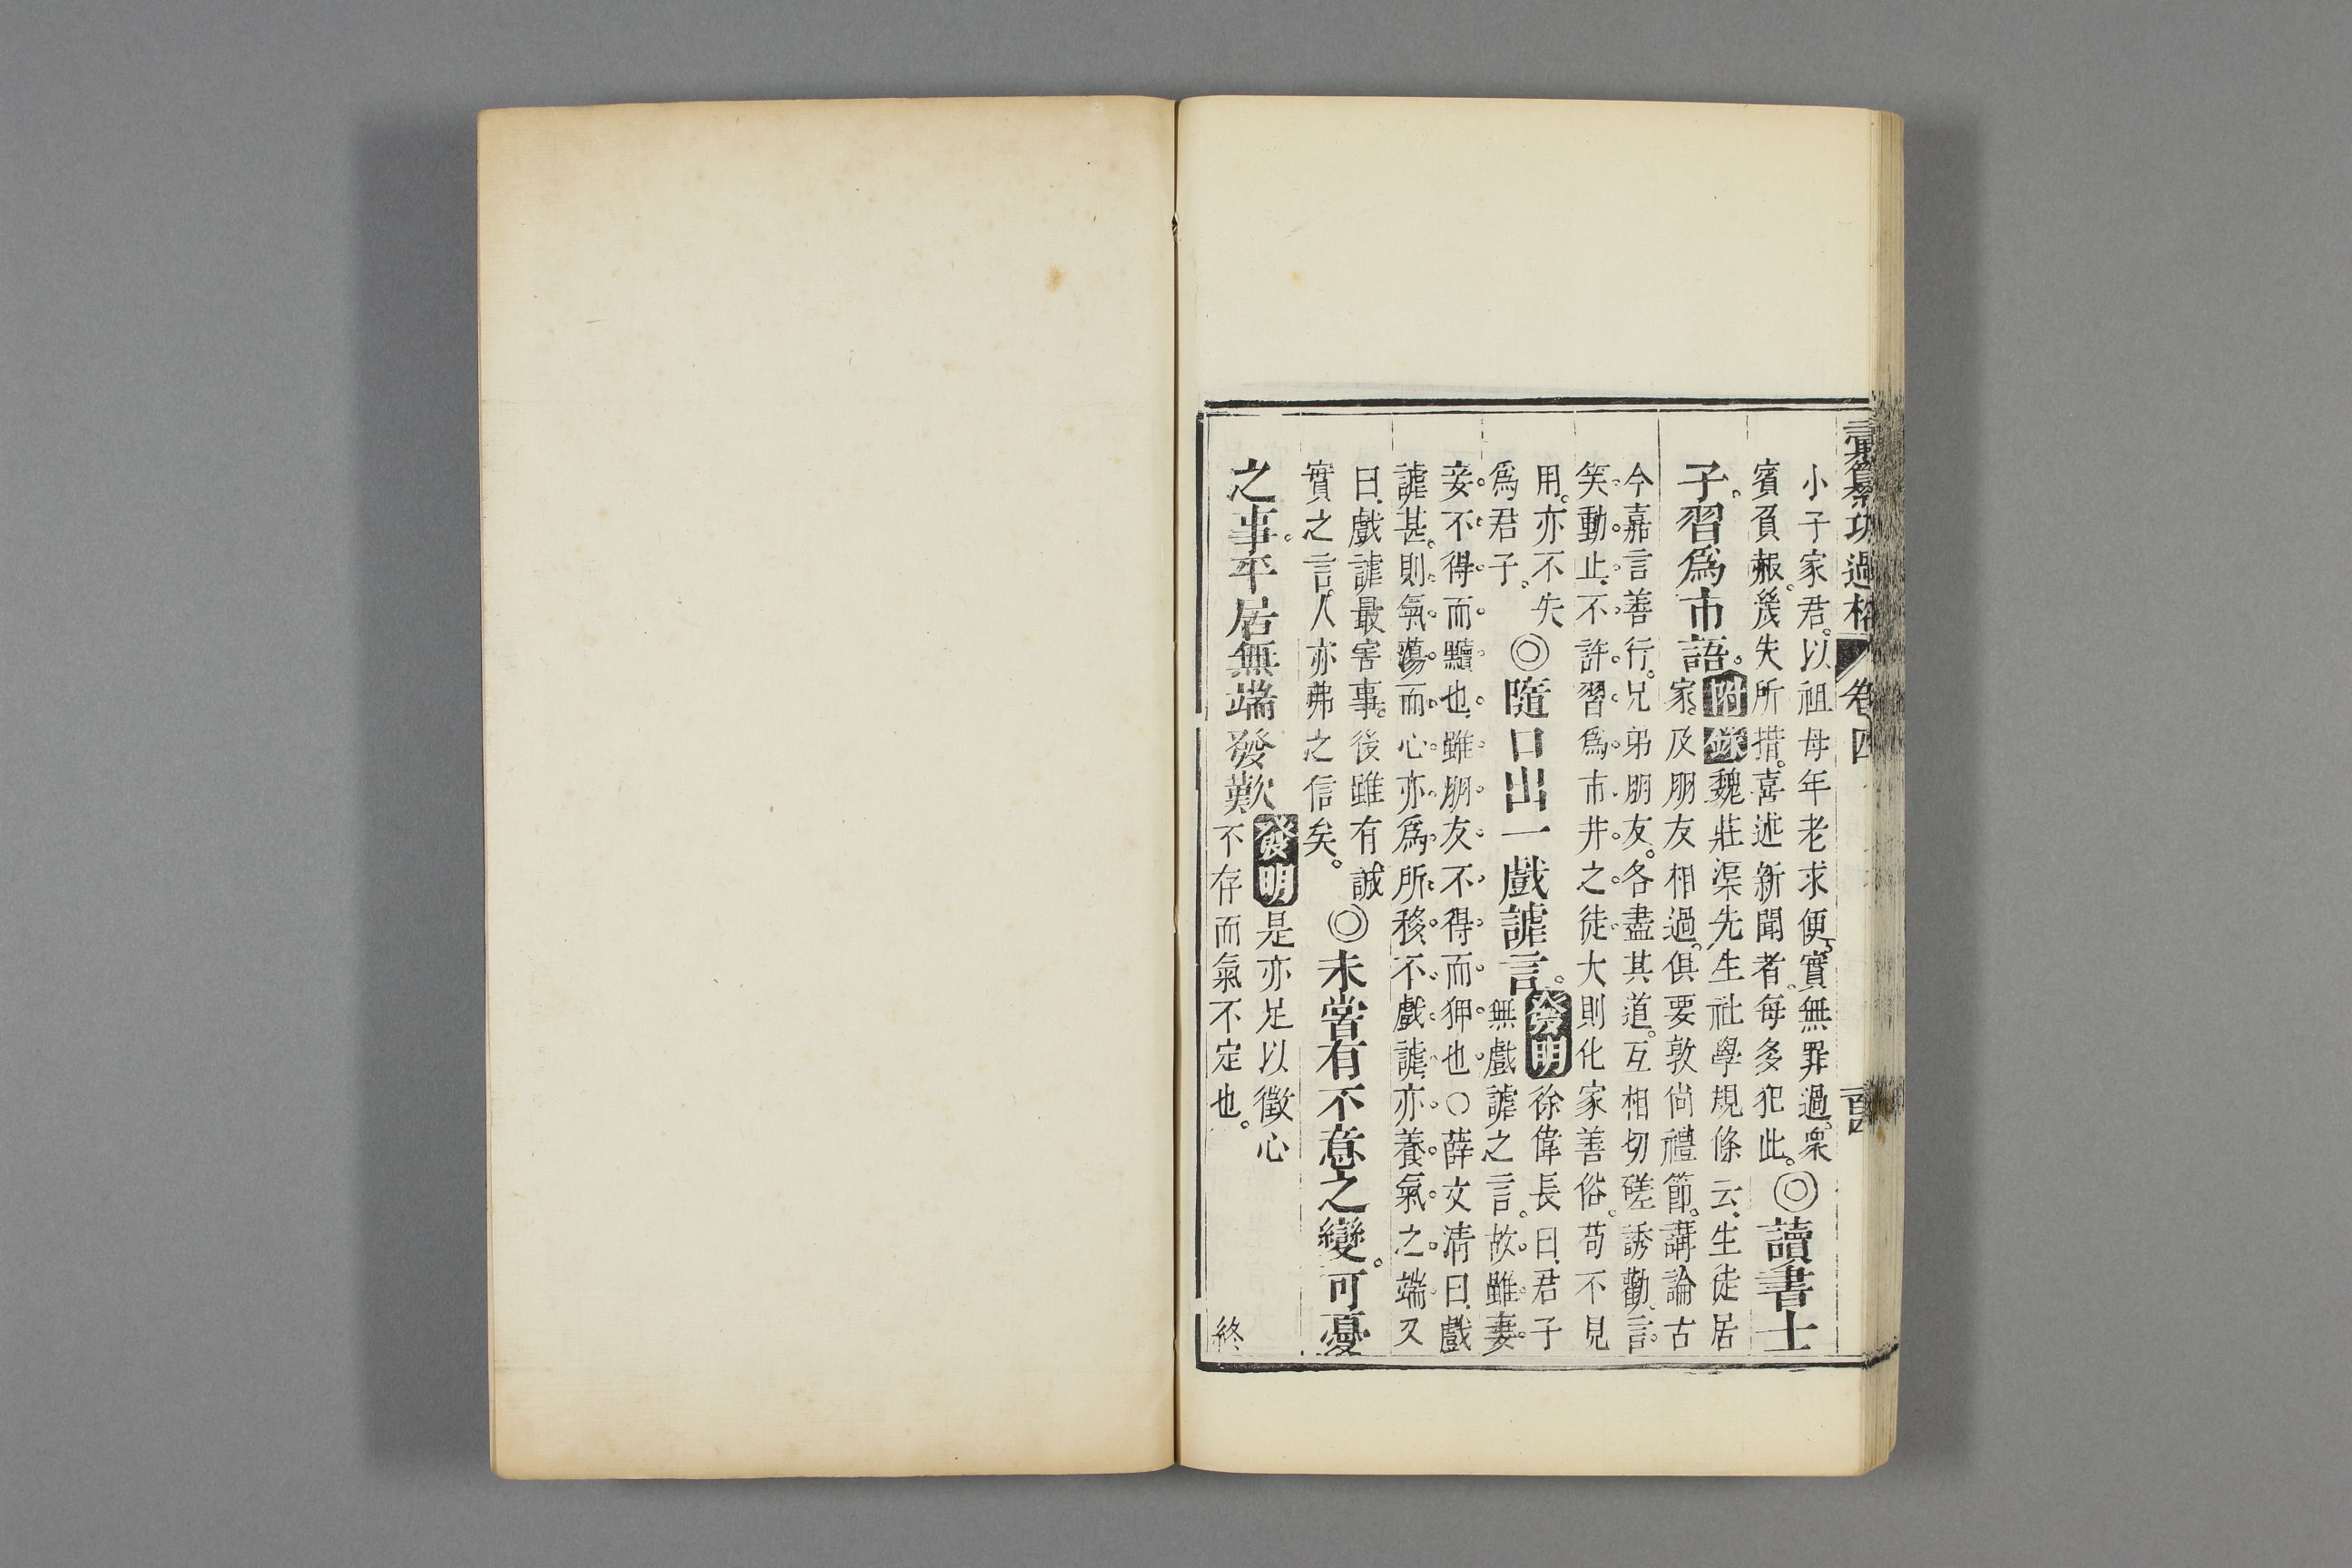 彙纂功過格 卷四
小子家君。以祖母年老求便。實無罪過。衆
賓負赧。幾失所措。喜述新聞者。每多犯此。
◎讀書士
子習爲市語。
附錄 魏莊渠先生社學規條云。生徒居
家。及朋友相過。俱要敦尚禮節。講論古
今嘉言善行。兄弟朋友。各盡其道。互相切磋誘勸。言
笑動止。不許習爲市井之徒大則化家善俗。苟不見
用。亦不失
爲君子。
◎隨口出一戲謔言。
發明 徐偉長曰。君子
無戲謔之言。故雖妻
妾不得而黷也。雖朋友不得而狎也○薛文清曰。戲
謔甚。則氣蕩而心亦爲所移。不戲謔。亦養氣之端又
曰。戲謔最害事。後雖有誠
實之言。人亦弗之信矣。
◎未嘗有不意之變。可憂
之事。平居無端發歎
發明 是亦足以徵心
不存而氣不定也。
終